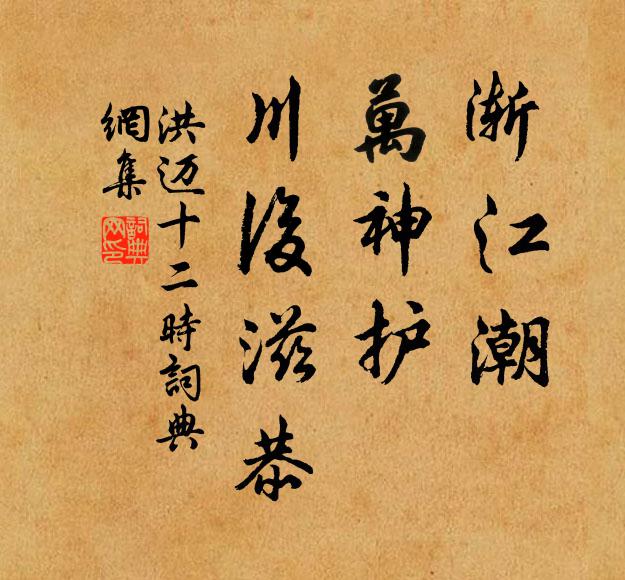 渐江潮
萬神护
川後滋恭
洪迈十二時詞典
網集
詞典网印